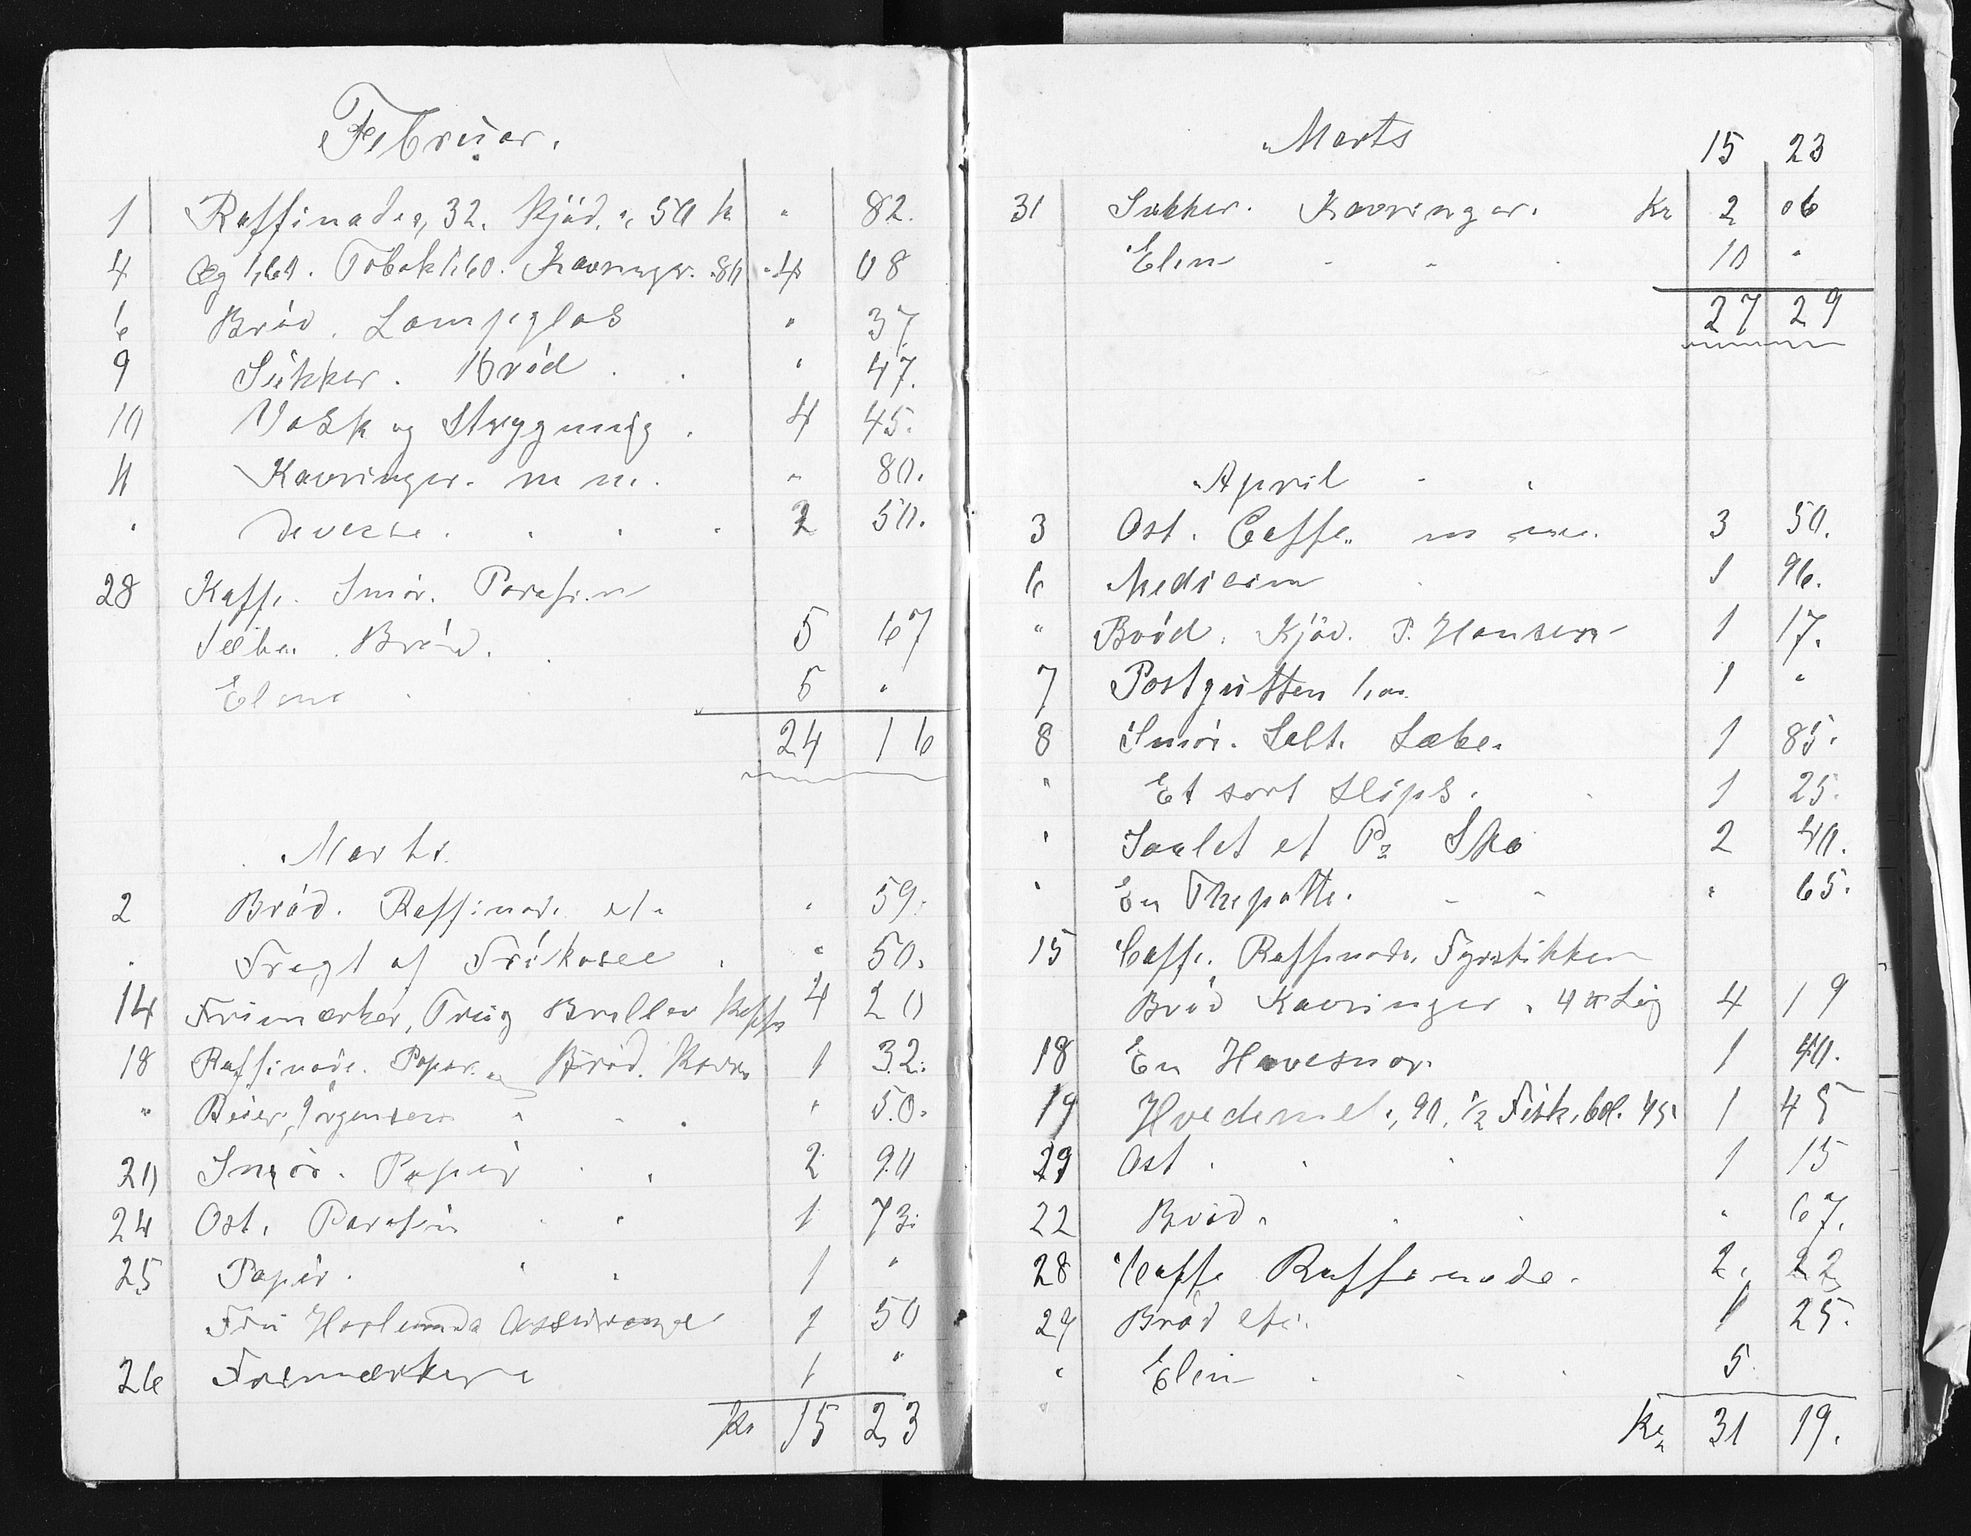 Februar.
1 Raffinade, 32. Kjød, " 50 k " 82.
4 Æg 1,60. Tobak 1,60. Kavringer. 80 4 08
6 Brød. Lampeglas " 37
9 Sukker. Brød " 47.
10 Vask og Strygning. 4 45.
11 Kavringer. m m. " 80.
" Deverse. 2 50.
28 Kaffe. Smør. Parafin
Sæbe. Brød. 5 67
Eline 5 "
24 16
Marts.
2 Brød. Raffinade " 59.
" Fragt af Frikasee " 50.
14 Frimærker, Briller 4 20
18 Raffinade. Papir. Brød. 1 32.
" Beier Jørgensen " 50.
20 Smør. Papir 2 90
24 Ost. Parafin 1 73.
25 Papir. 1 "
Fru 1 50
26 Frimærker 1 "
Kr 15 23
Marts 15 23
31 Sukker. Kavringer. Kr 2 06
Elin 10 "
27 29
April
3 Ost. Caffe. m m. 3 50.
6 Medicin 1 96.
" Brød. Kjød. P. Hansen 1 17.
7 Postgutten 1,00 1 "
8 Smør. Salt. Sæbe. 1 85.
" Et sort Slips. 1 25.
" Saalet et Pr Sko 2 40.
" En Thepotte. " 65.
15 Caffe. Raffinade. Fyrstikker
Brød Kavringer. 4 Løg 4 19
18 En Havesnor. 1 40.
19 Hvedemel, 90. 1/2 Fisk.bol. 45 1 45
29 Ost 1 15
22 Brød. " 67.
28 Caffe Raffinade. 2. 22
29 Brød 1 25.
" Elin 5.
Kr 31 19.